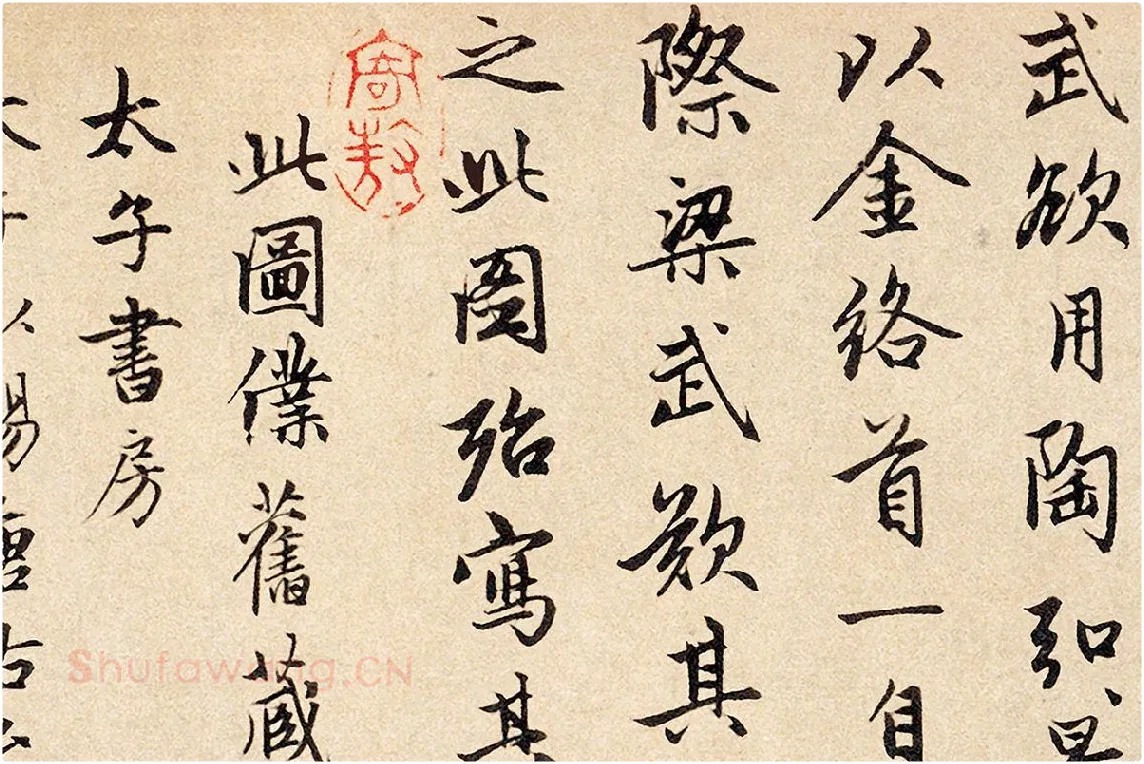 武欲用陶弘景
以金絡首一自
際梁武歎其
之此圖殆寫其
此圖僕舊藏
太子書房
Shufawang.CN